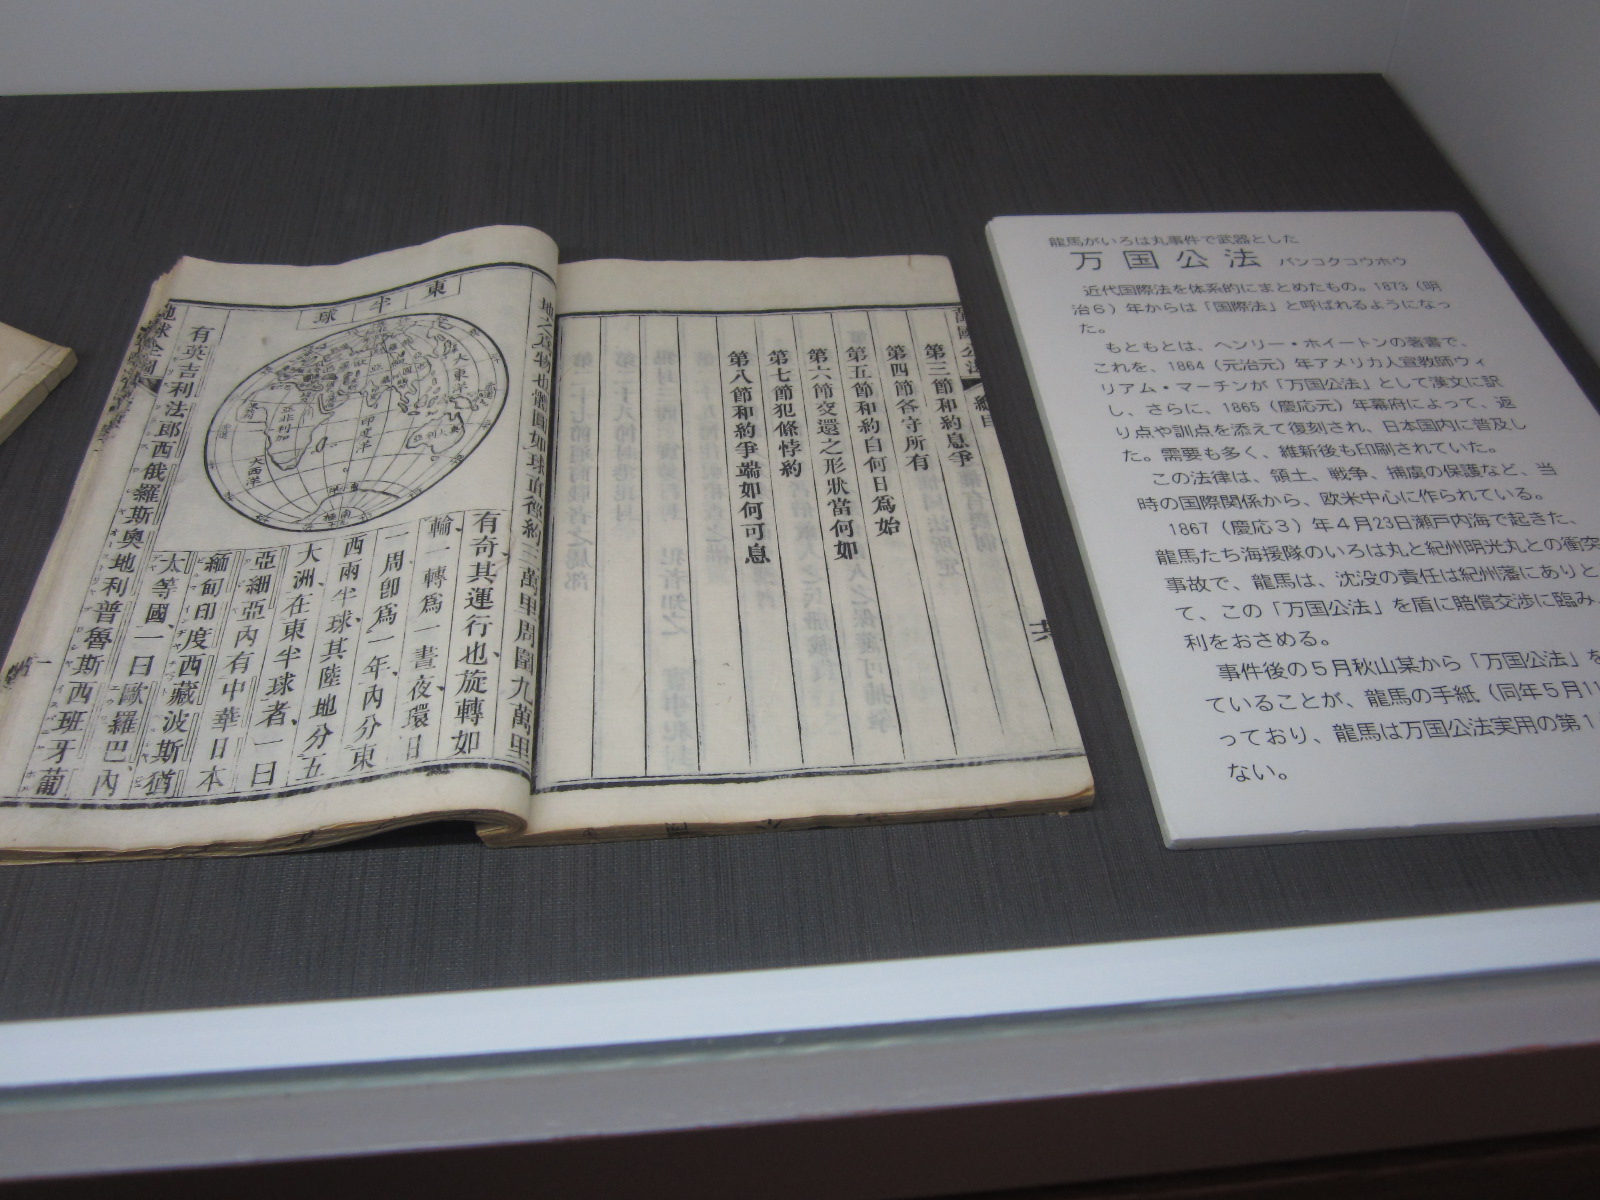 龍馬がいろは丸事件で武器とした
万国公法 バンコクコウホウ
近代国際法を体系的にまとめたもの。1873（明
治6）年からは「国際法」と呼ばれるようになっ
た。
もともとは、ヘンリー・ホイートンの著書で、
これを、1864（元治元）年アメリカ人宣教師ウィ
リアム・マーチンが「万国公法」として漢文に訳
し、さらに、1865（慶応元）年幕府によって、返
り点や訓点を添えて復刻され、日本国内に普及し
た。需要も多く、維新後も印刷されていた。
この法律は、領土、戦争、捕虜の保護など、当
時の国際関係から、欧米中心に作られている。
1867（慶応3）年4月23日瀬戸内海で起きた、
龍馬たち海援隊のいろは丸と紀州明光丸との衝突
事故で、龍馬は、沈没の責任は紀州藩にありと
て、この「万国公法」を盾に賠償交渉に臨み、
利をおさめる。
事件後の5月秋山某から「万国公法」を
ていることが、龍馬の手紙（同年5月11
っており、龍馬は万国公法実用の第1
ない。
萬國公法 總目
第三節和約息爭
第四節各守所有
第五節和約自何日爲始
第六節交還之形狀當何如
第七節犯條悖約
第八節和約爭端如何可息
東半球
大東洋
印度洋
亞非利加
大西洋
地之爲物也體圓如球直徑約三萬里周圍九萬里
有奇其運行也旋轉如
輪一轉爲一晝夜環日
一周卽爲一年內分東
西兩半球其陸地分五
大洲在東半球者一曰
亞細亞內有中華日本
緬甸印度西藏波斯猶
太等國一曰歐羅巴內
有英吉利法郎西俄羅斯奧地利普魯斯西班牙葡
地球全圖